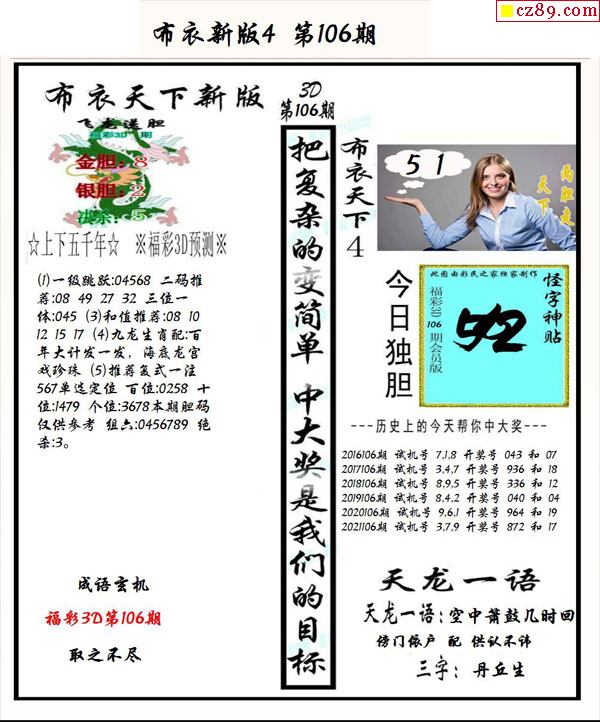 cz89.com
布衣新版4 第106期
布衣天下新版
飞龙送胆
福彩3D 期
金胆:8
银胆:2
决杀:5
☆上下五千年☆ ※福彩3D预测※
(1)一级跳跃:04568 二码推
荐:08 49 27 32 三位一
体:045 (3)和值推荐:08 10
12 15 17 (4)九龙生肖配:百
年大计发一发，海底龙宫
戏珍珠 (5)推荐复式一注
567单选定位 百位:0258 十
位:1479 个位:3678本期胆码
仅供参考 组六:0456789 绝
杀:3。
成语玄机
福彩3D第106期
取之不尽
3D
第106期
把复杂的变简单 中大奖是我们的目标
布衣天下4
51
两胆走天下
今日独胆
此图由彩民之家独家制作
福彩3D106期会员版
怪字神贴
---历史上的今天帮你中大奖---
2016106期 试机号 7,1,8 开奖号 043 和 07
2017106期 试机号 3,4,7 开奖号 936 和 18
2018106期 试机号 8,9,5 开奖号 336 和 12
2019106期 试机号 8,4,2 开奖号 040 和 04
2020106期 试机号 9,6,1 开奖号 964 和 19
2021106期 试机号 3,7,9 开奖号 872 和 17
天龙一语
天龙一语:空中箫鼓几时回
傍门依户 配 供认不讳
三字: 丹丘生